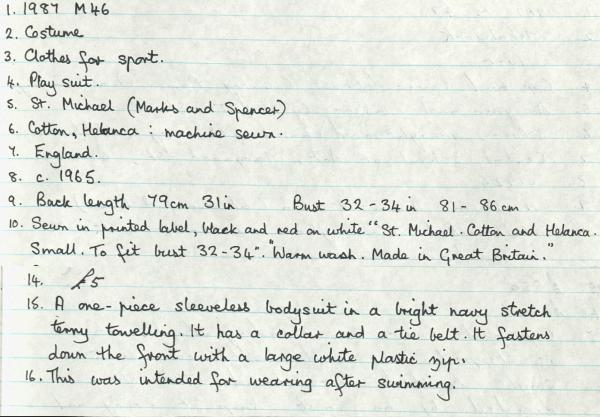 1. 1987 M46
2. Costume
3. Clothes for sport.
4. Play suit.
5. St. Michael (Marks and Spencer)
6. Cotton, Helanca : machine sewn.
7. England.
8. c. 1965.
9. Back length 79cm 31in Bust 32-34in 81-86cm
10. Sewn in printed label, black and red on white "St. Michael. Cotton and Helanca.
Small. To fit bust 32-34". "Warm wash. Made in Great Britain."
14. £5
15. A one-piece sleeveless bodysuit in a bright navy stretch
terry towelling. It has a collar and a tie belt. It fastens
down the front with a large white plastic zip.
16. This was intended for wearing after swimming.